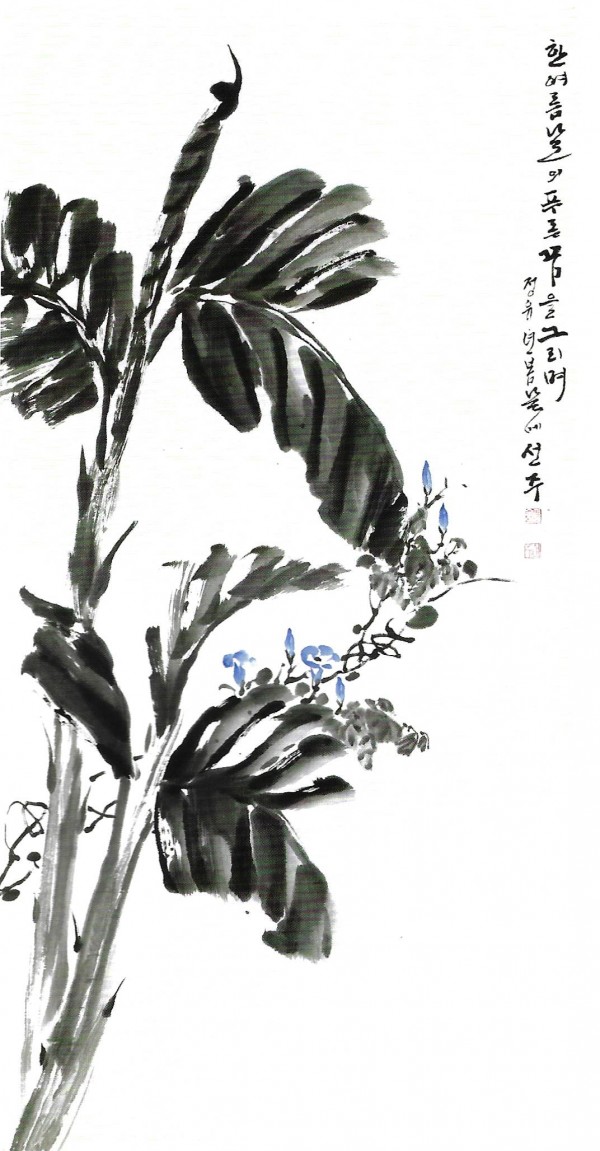 한여름날의 푸른 꿈을 그리며
정유년 봄날에 선주